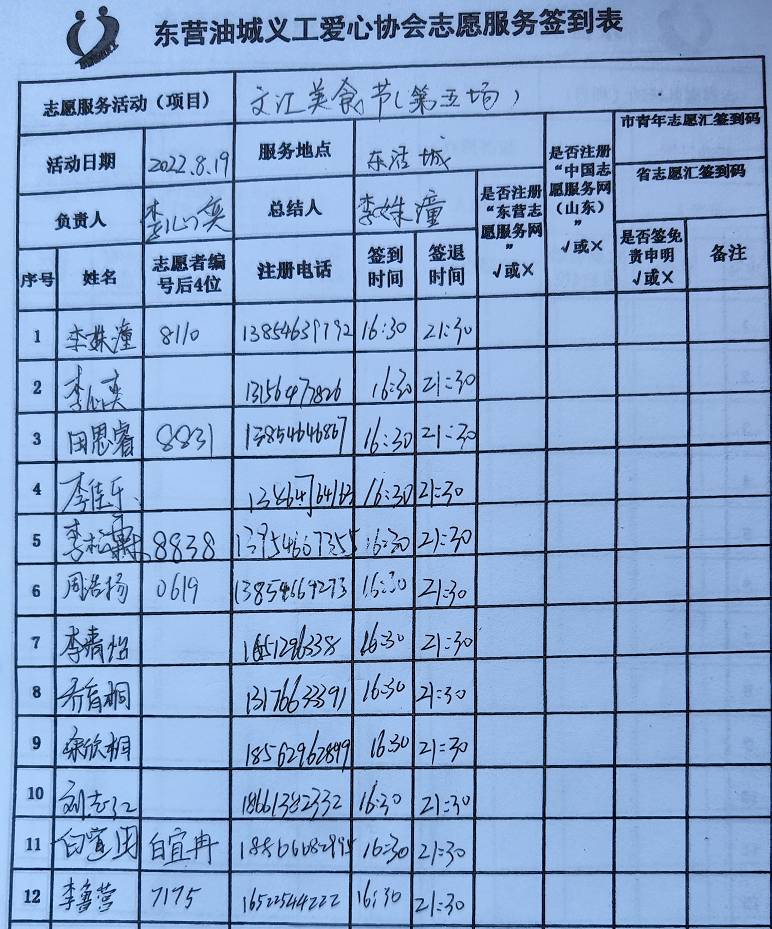 东营油城义工爱心协会志愿服务签到表
志愿服务活动（项目） 文汇美食节（第五场）
活动日期 2022.8.19 服务地点 东活城 是否注册“东营志愿服务网”√或× 是否注册“中国志愿服务网（山东）”√或× 市青年志愿汇签到码
省志愿汇签到码
负责人 李心奕 总结人 李姝潼
序号 姓名 志愿者编号后4位 注册电话 签到时间 签退时间 是否签免责申明√或× 备注
1 李姝潼 8110 13854639792 16:30 21:30
2 李心奕 13156477826 16:30 21:30
3 田思睿 8831 13854646867 16:30 21:30
4 李佳乐 16:30 21:30
5 李松霖 8838 16:30 21:30
6 周浩扬 0619 13854664273 16:30 21:30
7 李清怡 16:30 21:30
8 乔育桐 13176633391 16:30 21:30
9 徐欣桐 18562962899 16:30 21:30
10 刘志江 18661382332 16:30 21:30
11 白宜冉 16:30 21:30
12 李鲁营 7175 16522544222 16:30 21:30